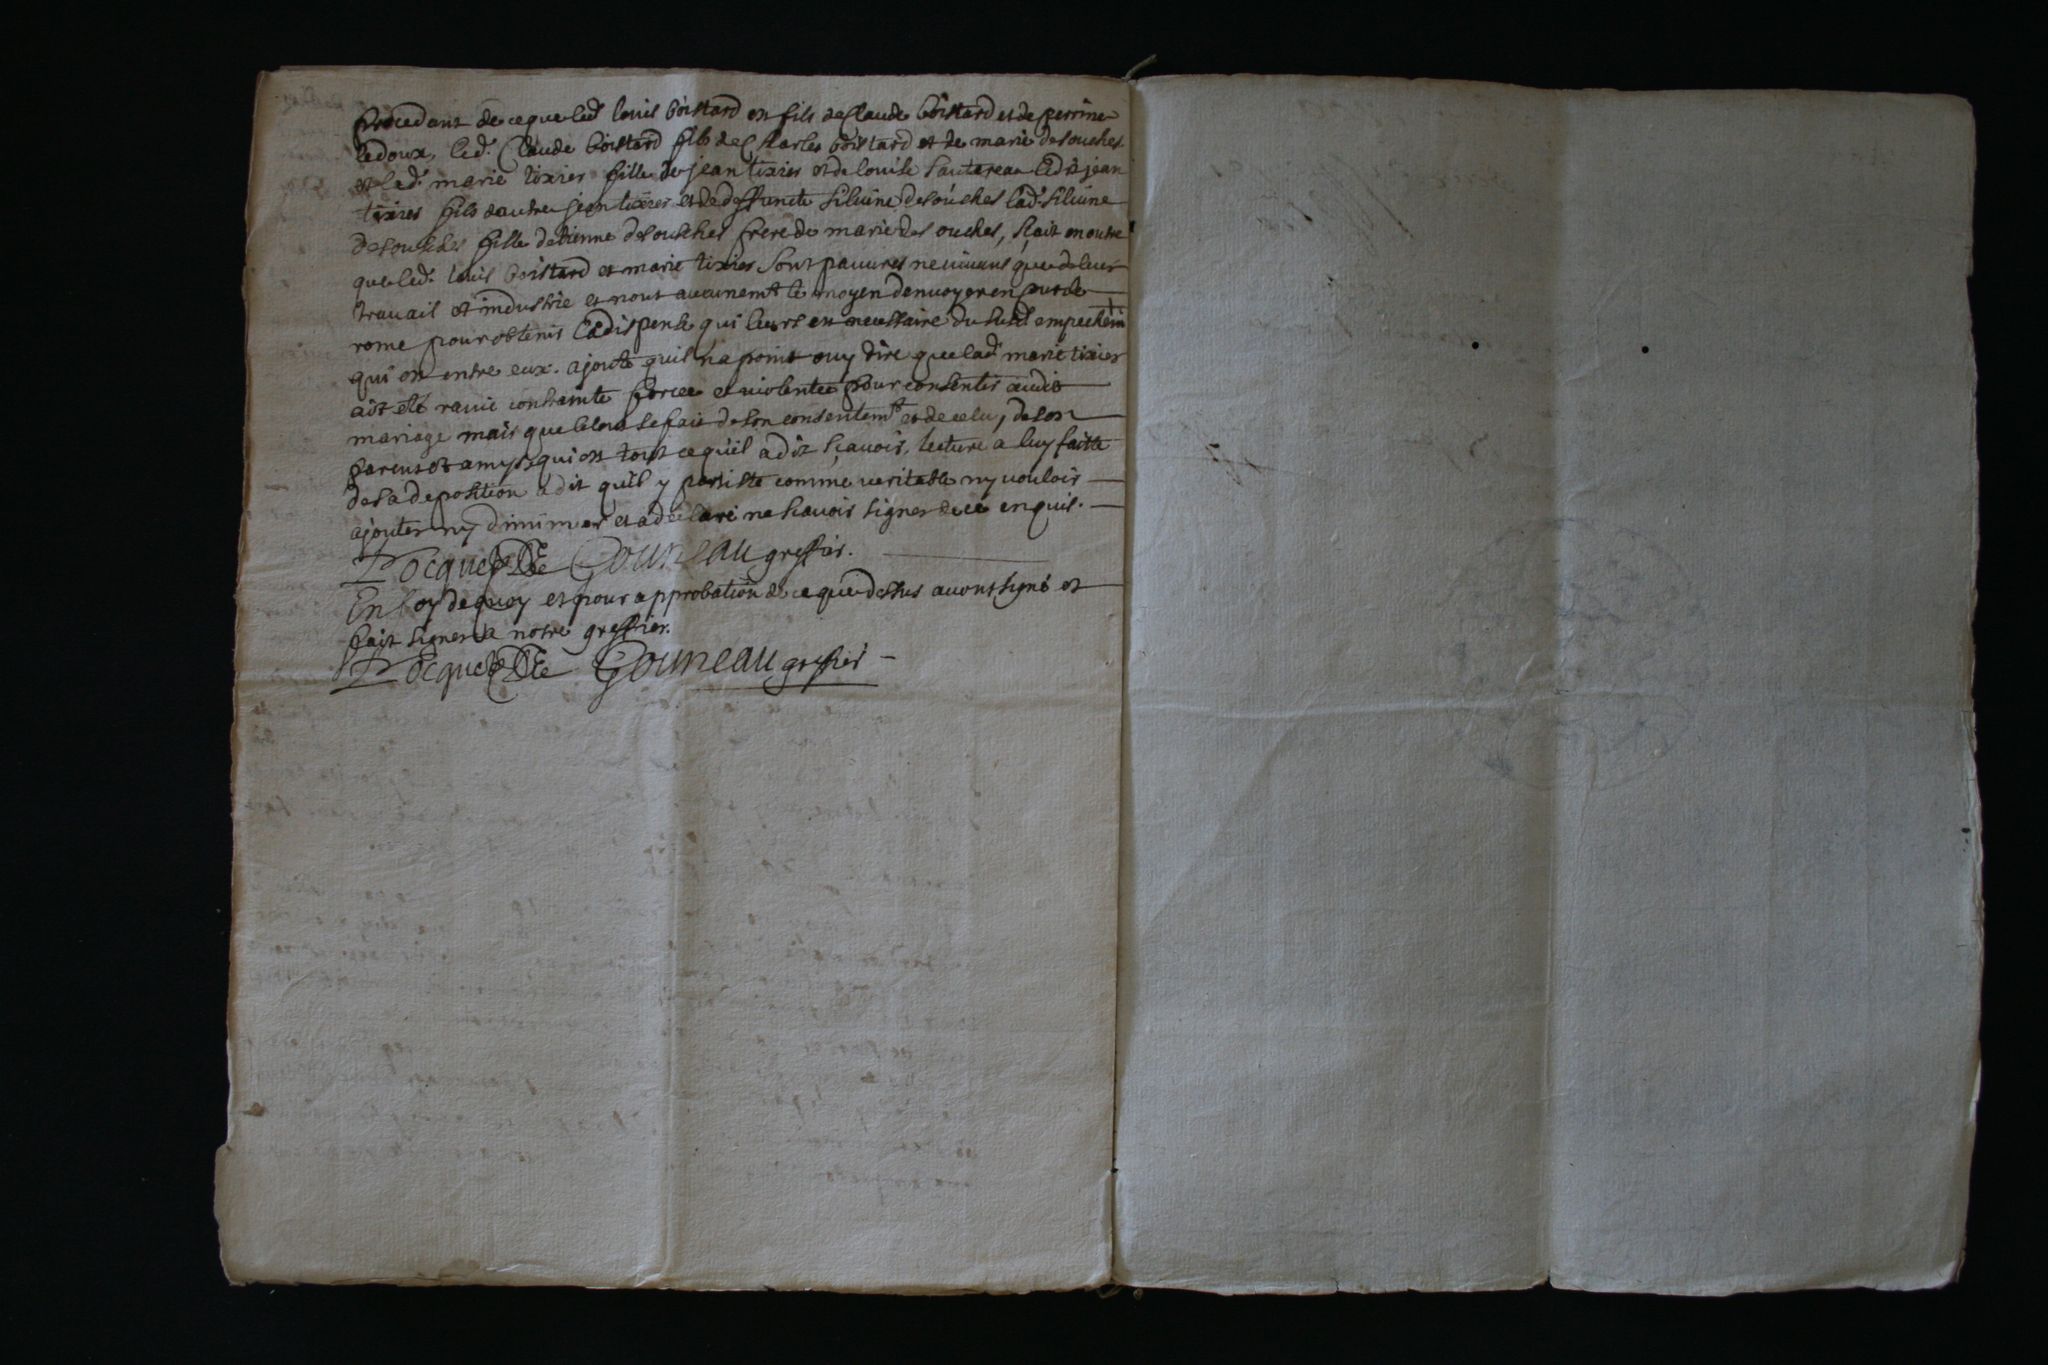 procedant de ce que led. louis boistard est fils de Claude boistard et de perrine
ledoux, led. Claude boistard fils de Charles boistard et de marie desouches
et lad. marie tixier fille de jean tixier et de louise sautereau ledit jean
tixier fils dautre jean tixier et de deffuncte silvine desouches lad. silvine
desouches fille detienne desouches frere de marie desouches, scait en outre
que led. louis boistard et marie tixier sont pauvres ne vivans que de leur
travail et industrie et nont aucunemt le moyen denvoyer en cour de
rome pour obtenir la dispense qui leur est necessaire du susd. empeschemt
qui est entre eux. ajoute quil na point ouy dire que lad. marie tixier
ait esté ravie contrainte forcee et violentee pour consentir audit
mariage mais que le tout se fait de son consentemt et de celuy de ses
parens et amys, qui est tout ce quil a dit scavoir, lecture a luy faitte
de sa deposition a dit quil y persiste comme veritable ny vouloir
ajouter ny diminuer et a declaré ne scavoir signer de ce enquis.
Gouneau greffier.
En foy de quoy et pour approbation de ce que dessus avons signé et
fait signer a notre greffier.
Gouneau greffier